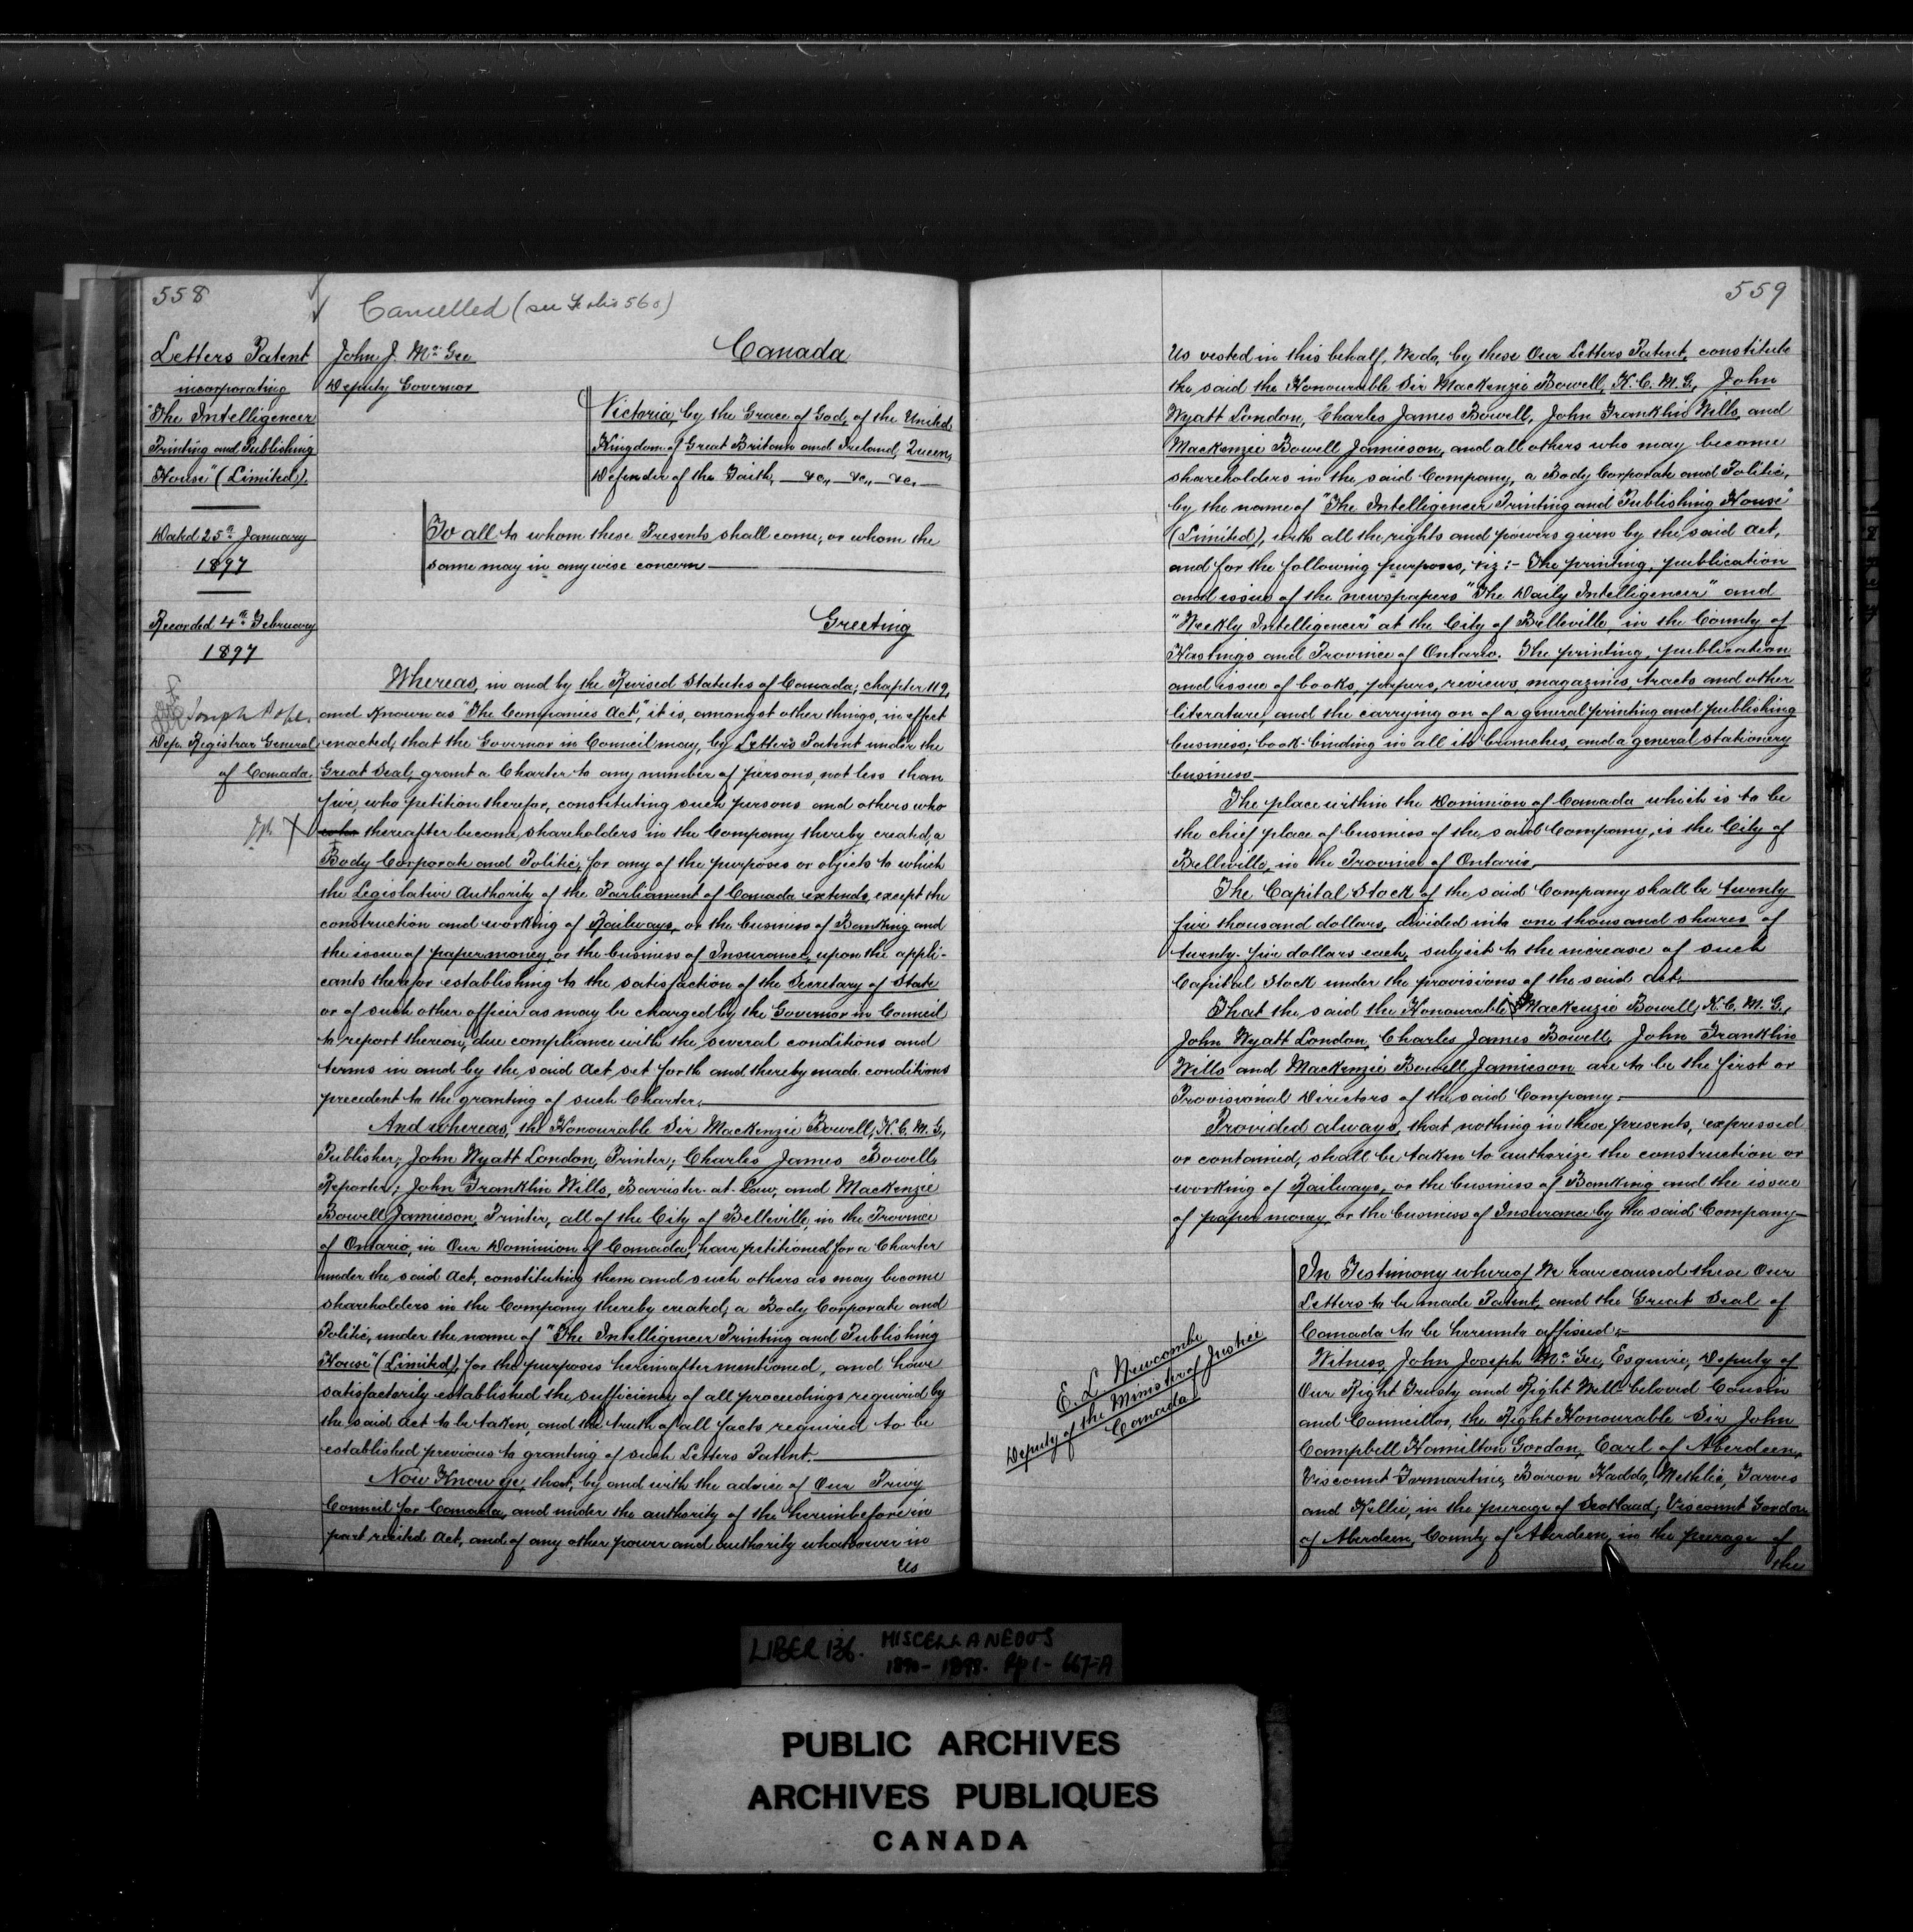 558
Cancelled (see Folio 560)
Letters Patent
incorporating
"The Intelligencer
Printing and Publishing
House" (Limited).
Dated 25th January
1897
Recorded 4th February
1897
Joseph Pope.
Dep. Registrar General
of Canada.
John J. McGee
Deputy Governor
Canada
Victoria, by the Grace of God, of the United
Kingdom of Great Britain and Ireland, Queen,
Defender of the Faith, &c., &c., &c.,
To all to whom these Presents shall come, or whom the
same may in anywise concern
Greeting
Whereas, in and by the Revised Statutes of Canada, chapter 119,
and known as "The Companies Act", it is, amongst other things, in effect
enacted, that the Governor in Council may, by Letters Patent under the
Great Seal, grant a Charter to any number of persons, not less than
five, who petition therefor, constituting such persons and others who
who thereafter become shareholders in the Company thereby created, a
Body Corporate and Politic, for any of the purposes or objects to which
the Legislative Authority of the Parliament of Canada extends, except the
construction and working of Railways, or the business of Banking and
the issue of paper money, or the business of Insurance, upon the appli-
cants therefor establishing to the satisfaction of the Secretary of State
or of such other officer as may be charged by the Governor in Council
to report thereon, due compliance with the several conditions and
terms in and by the said Act set forth and thereby made conditions
precedent to the granting of such Charter.
And whereas, the Honourable Sir Mackenzie Bowell, K.C.M.G.,
Publisher; John Wyatt London, Printer; Charles James Bowell,
Reporter; John Franklin Wills, Barrister-at-Law, and Mackenzie
Bowell Jamieson, Printer, all of the City of Belleville, in the Province
of Ontario, in Our Dominion of Canada, have petitioned for a Charter
under the said Act, constituting them and such others as may become
shareholders in the Company thereby created, a Body Corporate and
Politic, under the name of "The Intelligencer Printing and Publishing
House" (Limited), for the purposes hereinafter mentioned, and have
satisfactorily established the sufficiency of all proceedings required by
the said Act to be taken, and the truth of all facts required to be
established previous to granting of such Letters Patent.
Now Know ye, that, by and with the advice of Our Privy
Council for Canada, and under the authority of the hereinbefore in
part recited Act, and of any other power and authority whatsoever in
Us
559
Us vested in this behalf, We do, by these Our Letters Patent, constitute
the said the Honourable Sir Mackenzie Bowell, K.C.M.G., John
Wyatt London, Charles James Bowell, John Franklin Wills, and
Mackenzie Bowell Jamieson, and all others who may become
shareholders in the said Company, a Body Corporate and Politic,
by the name of "The Intelligencer Printing and Publishing House"
(Limited), with all the rights and powers given by the said Act,
and for the following purposes, viz:- The printing, publication
and issue of the newspapers "The Daily Intelligencer" and
"Weekly Intelligencer" at the City of Belleville, in the County of
Hastings and Province of Ontario. The printing, publication
and issue of books, papers, reviews, magazines, tracts and other
literature, and the carrying on of a general printing and publishing
business; book-binding in all its branches, and a general stationery
business
The place within the Dominion of Canada which is to be
the chief place of business of the said Company, is the City of
Belleville, in the Province of Ontario
The Capital Stock of the said Company shall be twenty
five thousand dollars, divided into one thousand shares of
twenty-five dollars each, subject to the increase of such
Capital Stock under the provisions of the said Act.
That the said the Honourable Mackenzie Bowell, K.C.M.G.,
John Wyatt London, Charles James Bowell, John Franklin
Wills and Mackenzie Bowell Jamieson are to be the first or
Provisional Directors of the said Company.
Provided always, that nothing in these presents, expressed
or contained, shall be taken to authorize the construction or
working of Railways, or the business of Banking and the issue
of paper money, or the business of Insurance by the said Company
E. L. Newcombe
Deputy of the Minister of Justice
Canada
In Testimony whereof We have caused these Our
Letters to be made Patent, and the Great Seal of
Canada to be hereunto affixed:
Witness, John Joseph McGee, Esquire, Deputy of
Our Right Trusty and Right Well-beloved Cousin
and Councillor, the Right Honourable Sir John
Campbell Hamilton Gordon, Earl of Aberdeen,
Viscount Formartine, Baron Haddo, Methlic, Tarves
and Kellie, in the peerage of Scotland; Viscount Gordon
of Aberdeen, County of Aberdeen, in the peerage of
the
LIBER 136. MISCELLANEOUS
PUBLIC ARCHIVES
ARCHIVES PUBLIQUES
CANADA